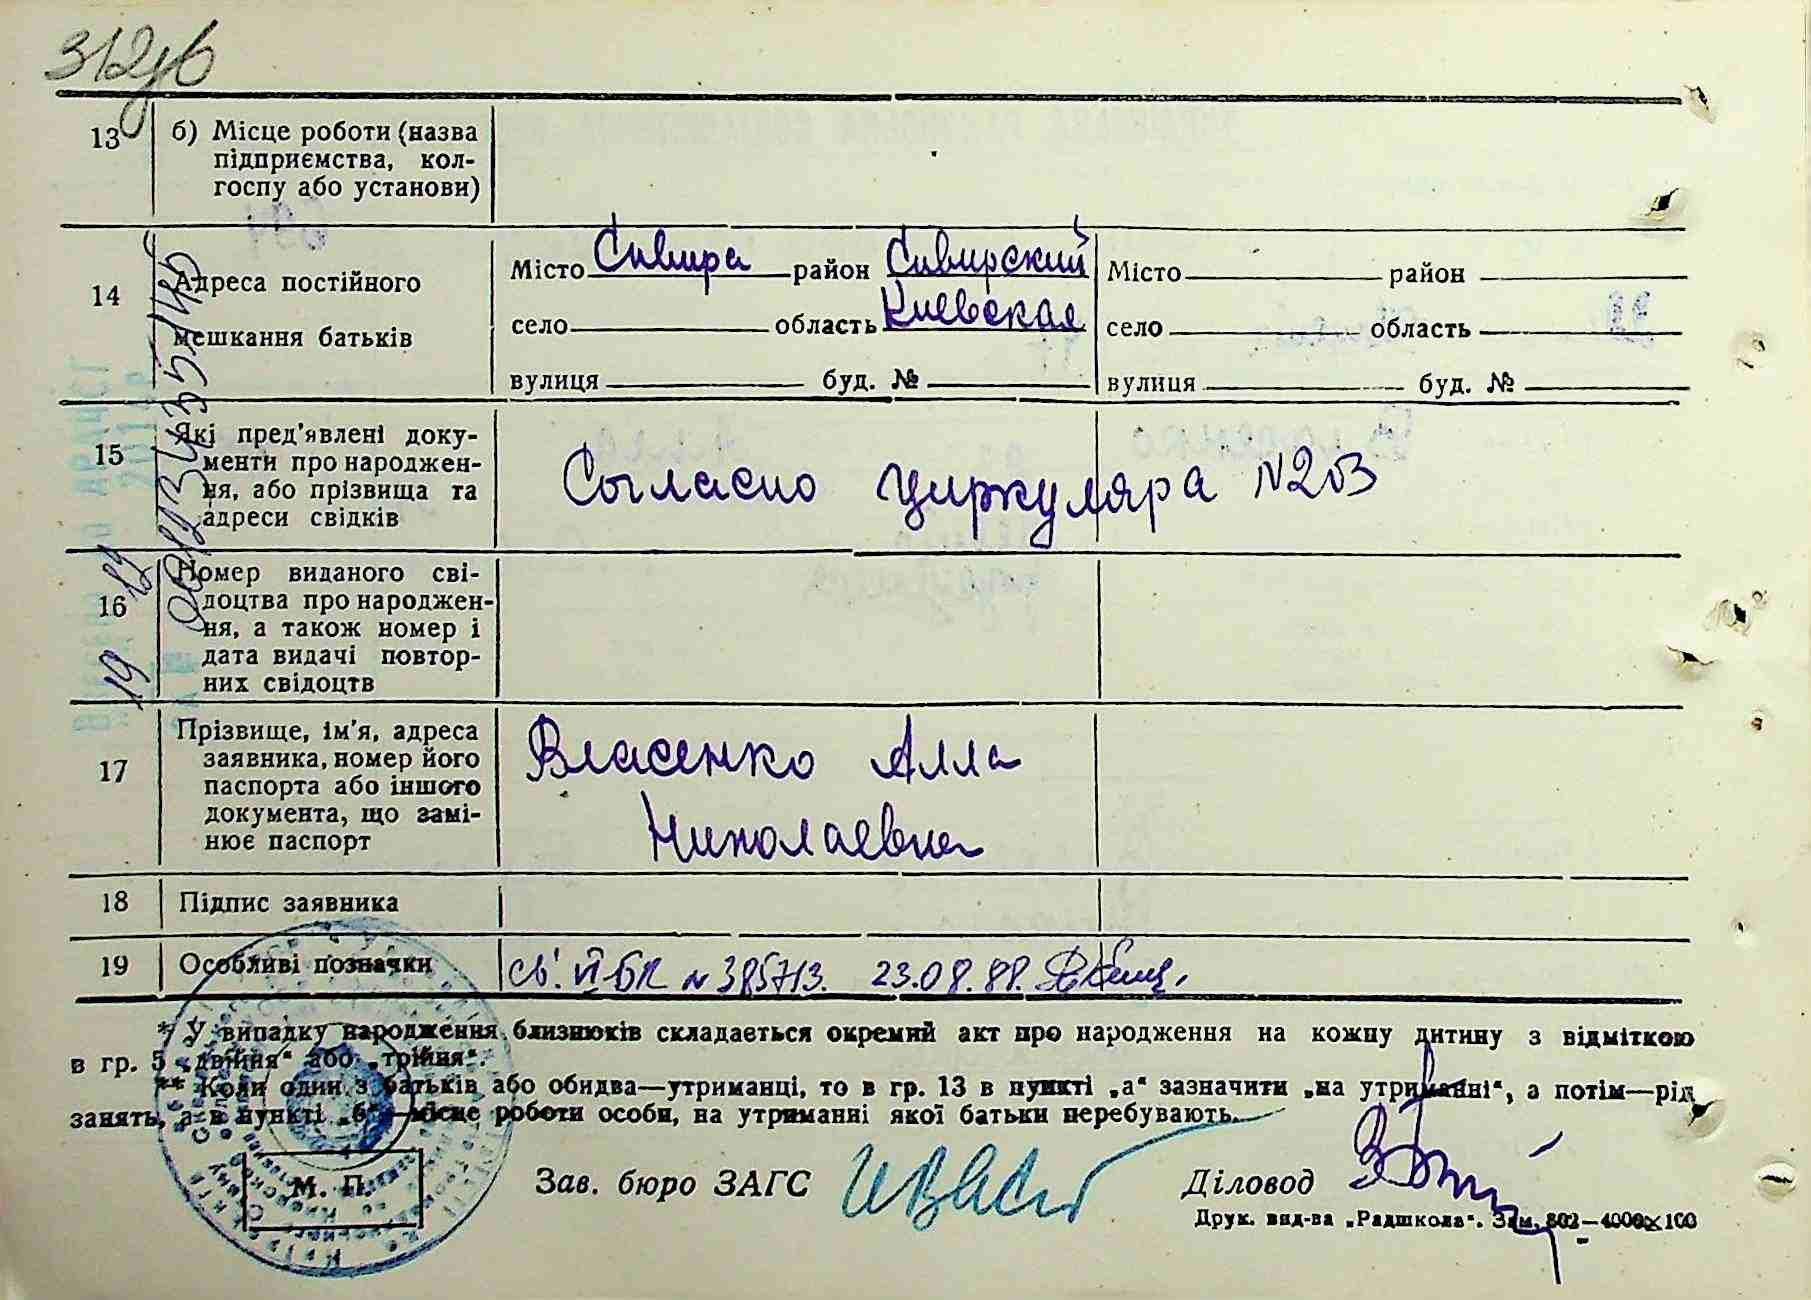 312зв
13 б) Місце роботи (назва
підприємства, кол-
госпу або установи)
14 Адреса постійного
мешкання батьків
Місто Сквира район Сквирский
село область Киевская
вулиця буд. №
Місто район
село область
вулиця буд. №
15 Які пред'явлені доку-
менти про народжен-
ня, або прізвища та
адреси свідків
Согласно циркуляра №203
16 Номер виданого сві-
доцтва про народжен-
ня, а також номер і
дата видачі повтор-
них свідоцтв
17 Прізвище, ім'я, адреса
заявника, номер його
паспорта або іншого
документа, що замі-
нює паспорт
Власенко Алла
Николаевна
18 Підпис заявника
19 Особливі позначки
св. VI БК № 385713. 23.08.88.
* У випадку народження близнюків складається окремий акт про народження на кожну дитину з відміткою
в гр. 5 „двійня“ або „трійня“.
** Коли один з батьків або обидва—утриманці, то в гр. 13 в пункті „а“ зазначити „на утриманні“, а потім—рід
занять, а в пункті „б“—місце роботи особи, на утриманні якої батьки перебувають.
М. П.
Зав. бюро ЗАГС
Діловод
Друк. вид-ва „Радшкола“. Зам. 802—4000×100